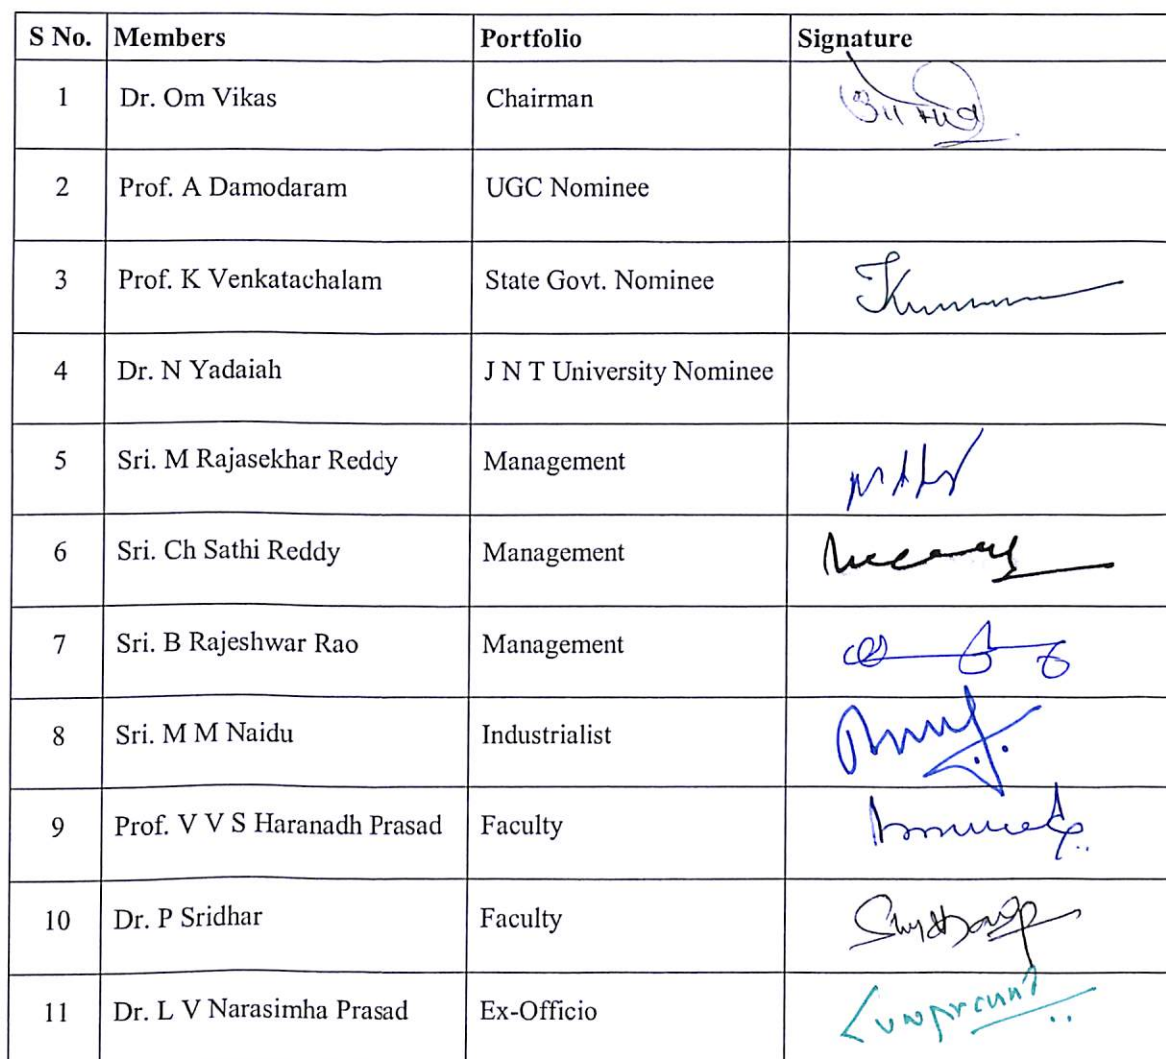 S No. Members Portfolio Signature
1 Dr. Om Vikas Chairman
2 Prof. A Damodaram UGC Nominee
3 Prof. K Venkatachalam State Govt. Nominee
4 Dr. N Yadaiah J N T University Nominee
5 Sri. M Rajasekhar Reddy Management
6 Sri. Ch Sathi Reddy Management
7 Sri. B Rajeshwar Rao Management
8 Sri. M M Naidu Industrialist
9 Prof. V V S Haranadh Prasad Faculty
10 Dr. P Sridhar Faculty
11 Dr. L V Narasimha Prasad Ex-Officio